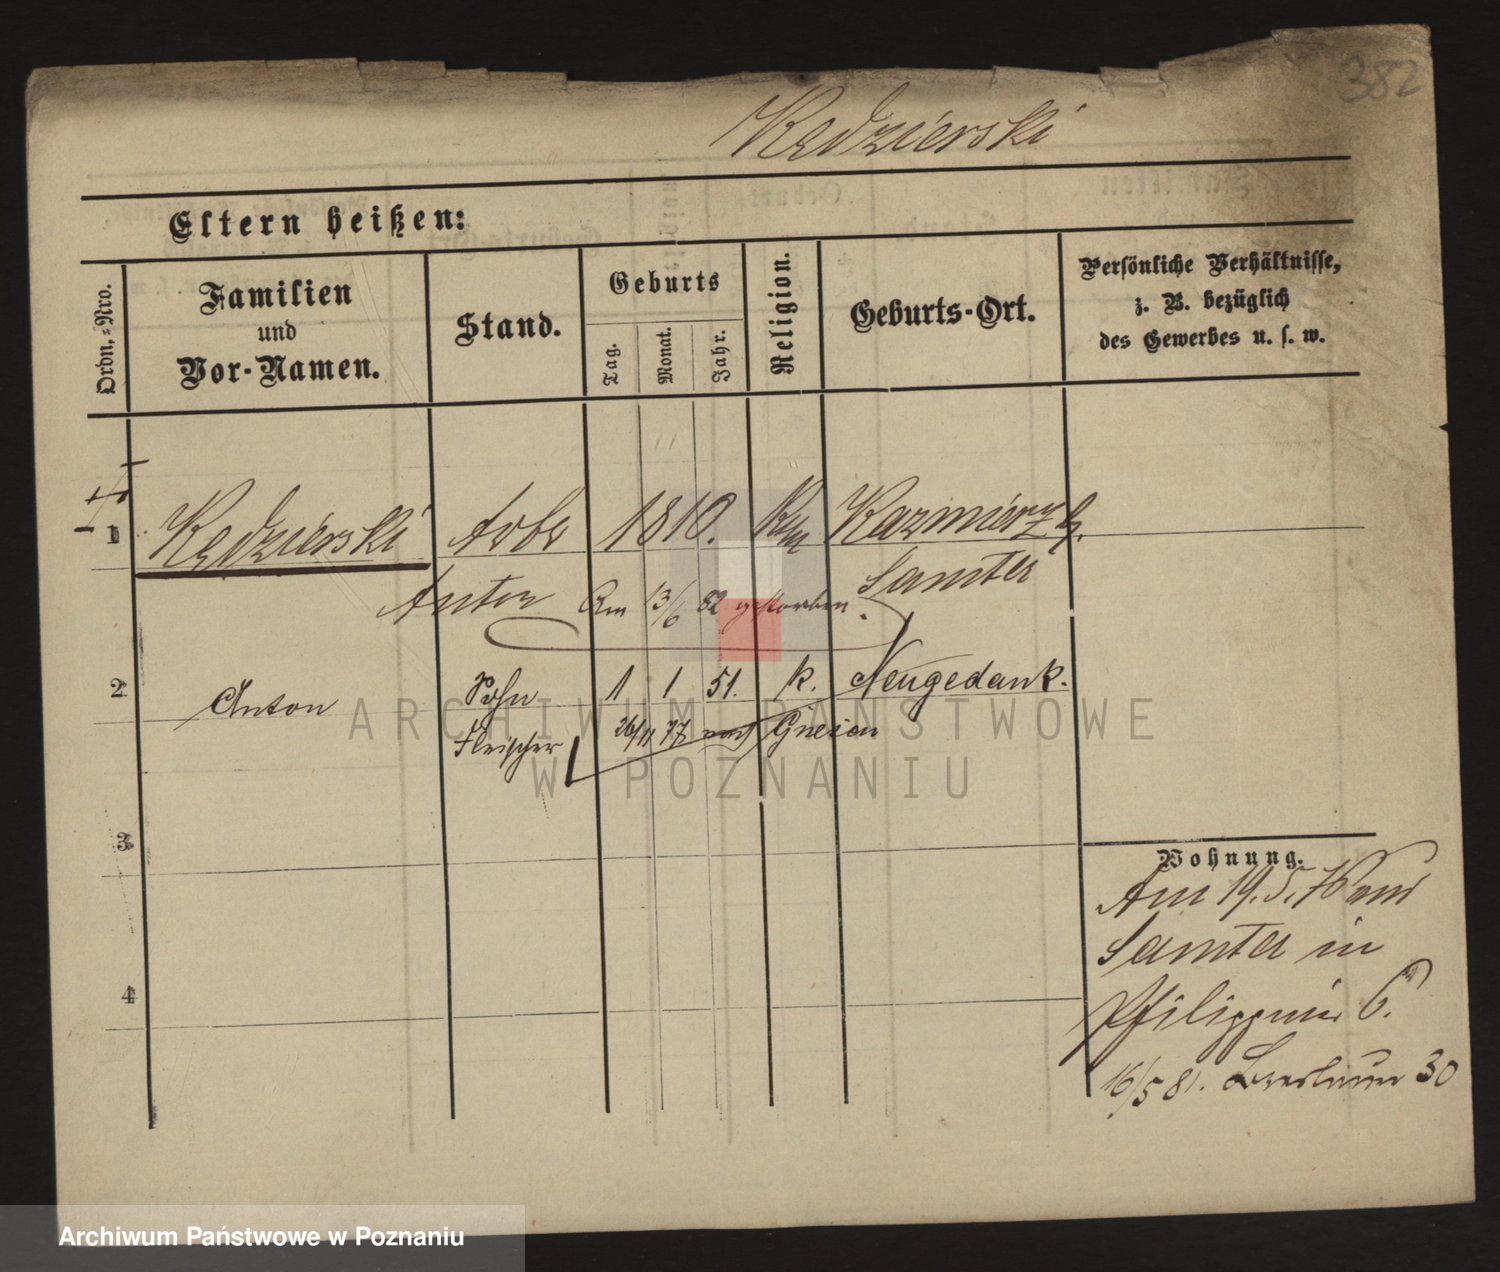 382
Kędzierski
Eltern heißen:
Ordn.-Nro.
Familien
und
Vor-Namen.
Stand.
Geburts
Tag.
Monat.
Jahr.
Religion.
Geburts-Ort.
Persönliche Verhältnisse,
z. B. bezüglich
des Gewerbes u. s. w.
1 Kędzierski Arbr 1810. Kazmierz b.
Anton Am 13/6 82 gestorben. Samter
2 Anton Sohn 1 1 51. k. Neugedank.
Fleischer 26/11 77 nach Gnesen
3
4
Wohnung.
Am 19.5.76 aus
Samter in
6.
16/5 81. 30
ARCHIWUM PAŃSTWOWE
W POZNANIU
Archiwum Państwowe w Poznaniu